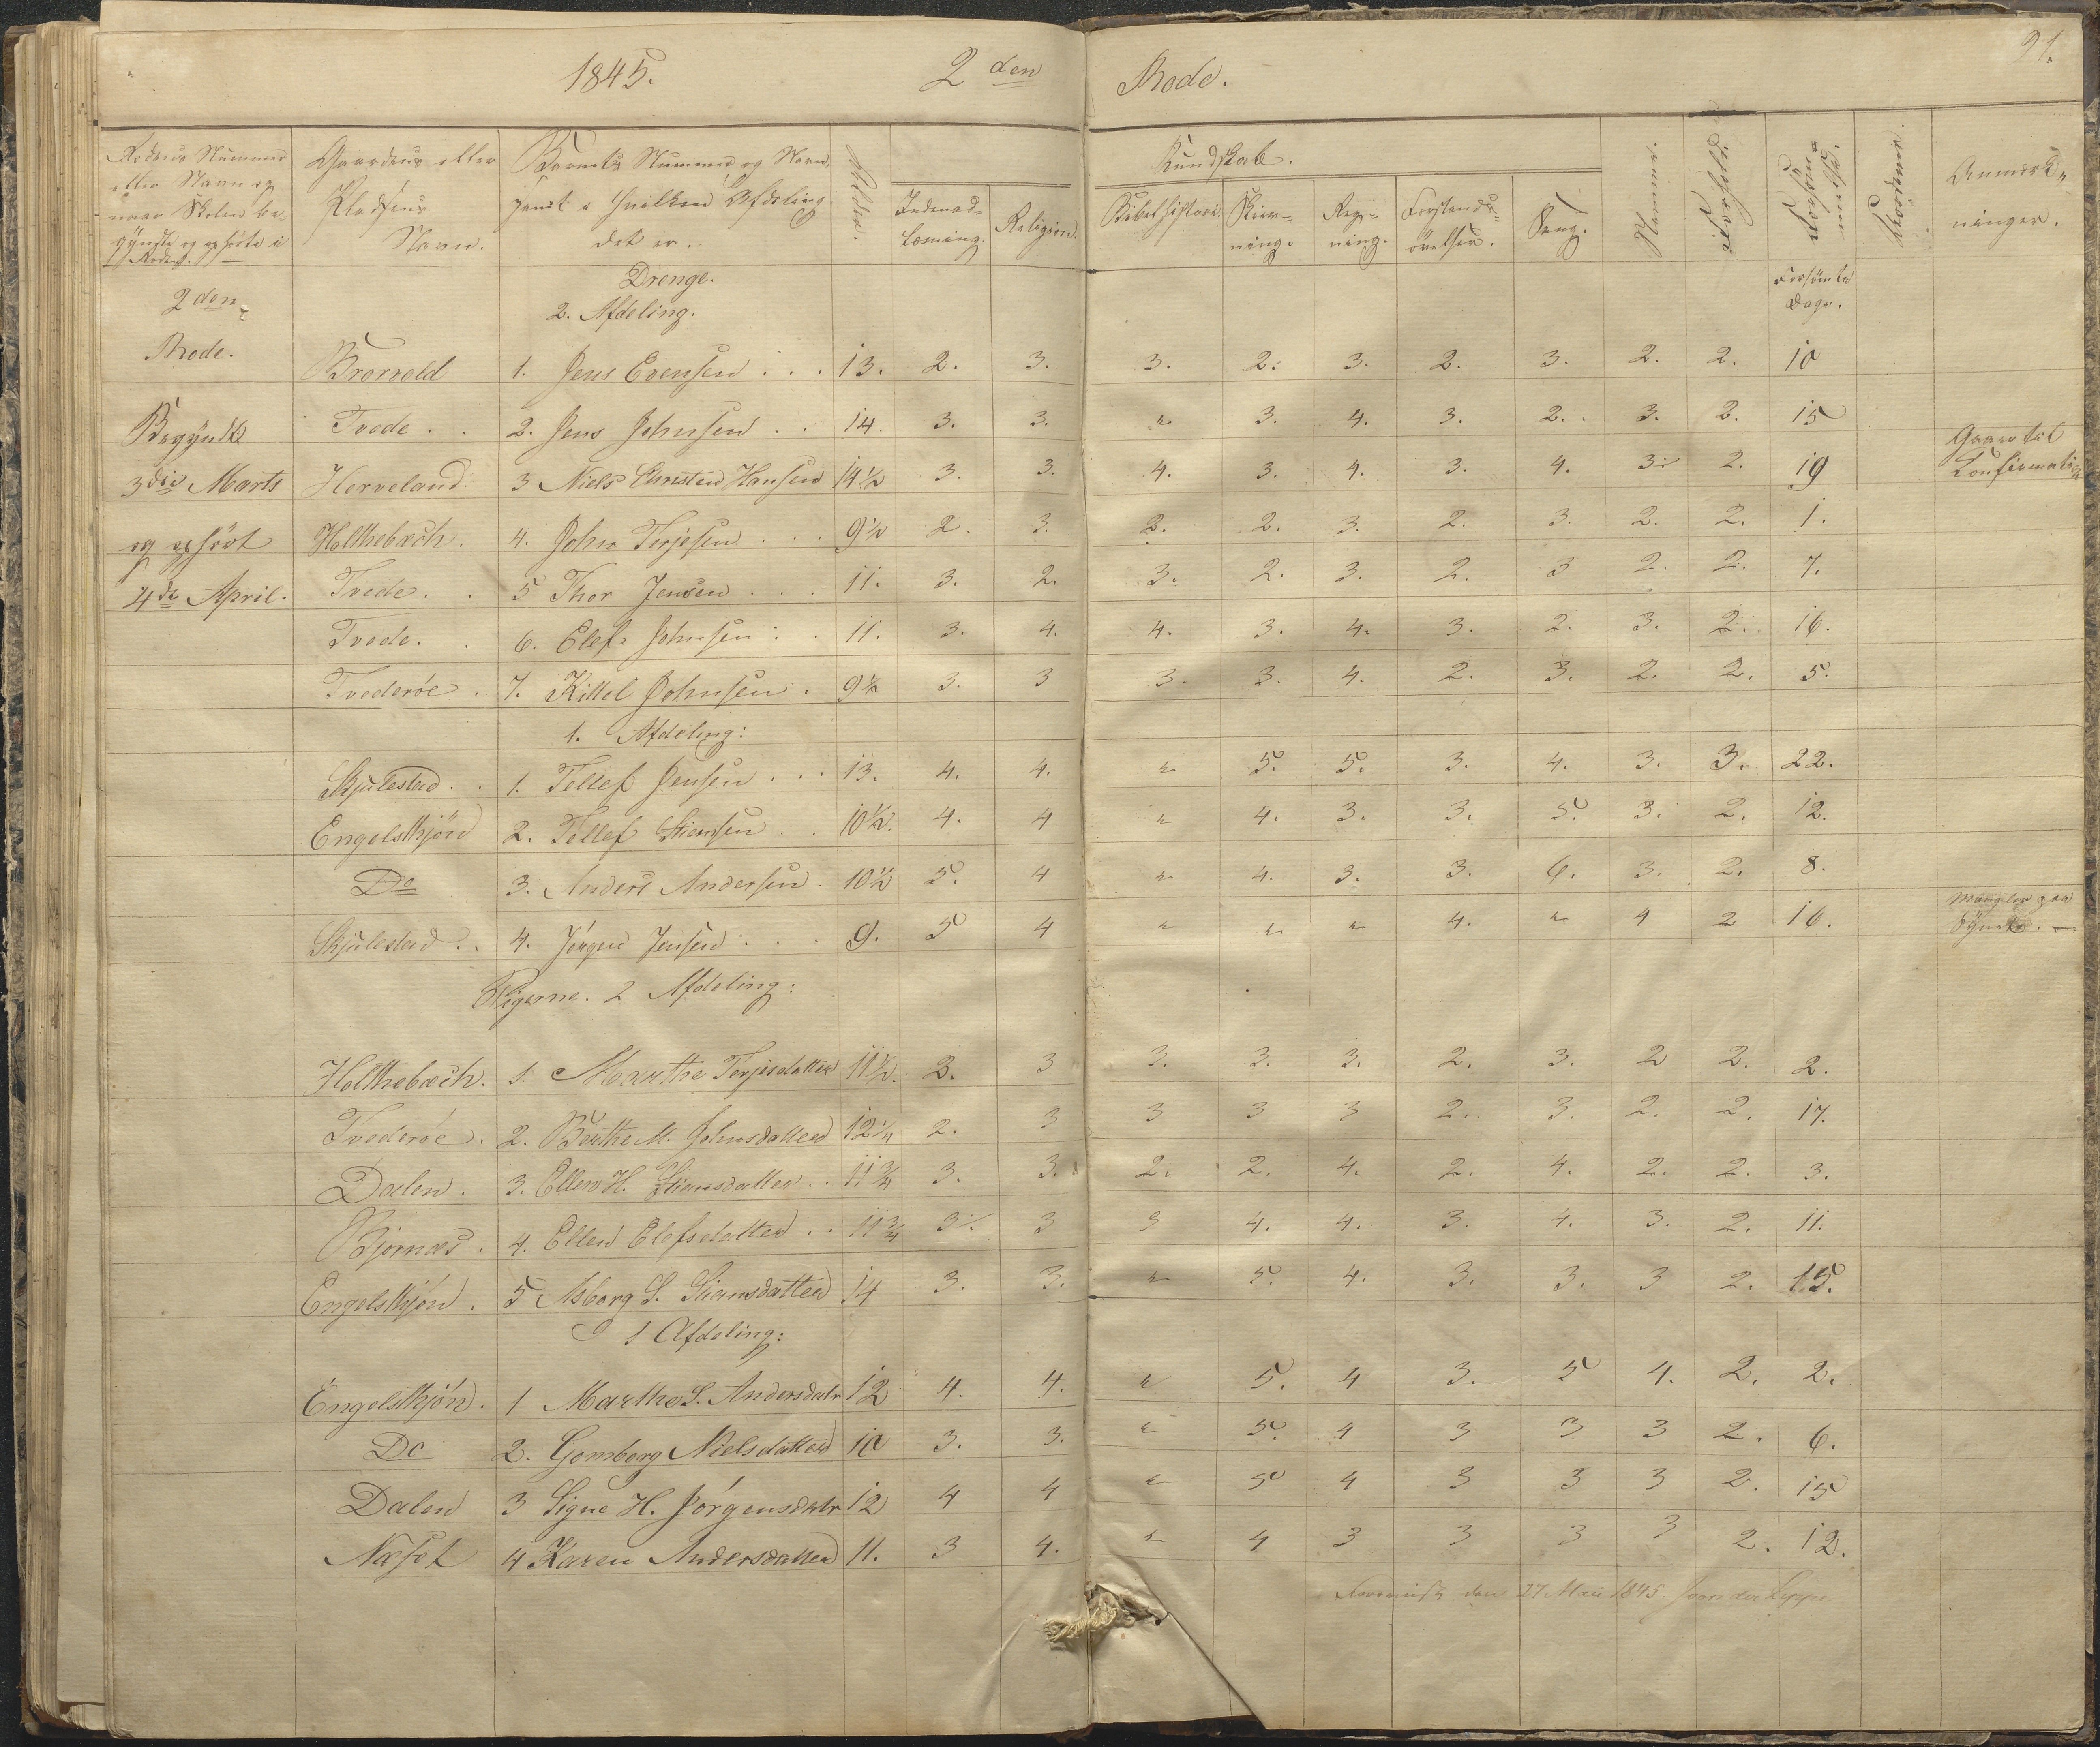 1845. 2 den Rode.
91.
Rodens Nummer eller Navn og naar Skolen begyndte og ophörte i Roden.
Gaardens eller Pladsens Navn.
Barnets Nummer og Navn, samt i hvilken Afdeling det er.
Alder.
Indenadlæsning.
Religion.
Kundskab.
Bibelhistorie.
Skrivning.
Regning.
Forstandsövelser.
Sang.
Nemme.
Forhold.
Anmærkninger.
Drenge.
Forsömte Dage.
2 den
2. Afdeling.
Rode.
Brorveld 1. Jens Evensen . . . 13. 2. 3. 3. 2. 3. 2. 3. 2. 2. 10
Begyndt Tvede . . 2. Jens Johnsen . . 14. 3. 3. " 3. 4. 3. 2. 3. 2. 15
3die Marts Herveland. 3 Niels Christen Hansen 14 1/2 3. 3. 4. 3. 4. 3. 4. 3. 2. 19 Gaaer til Confirmation
og ophört Holthebæch. 4. John Terjesen . . . 9 1/2 2. 3. 2. 2. 3. 2. 3. 2. 2. 1.
4de April. Tvede . . 5 Thor Jensen . . . 11. 3. 2. 3. 2. 3. 2. 3 2. 2. 7.
Tvede. . 6. Elef Johnsen . . 11. 3. 4. 4. 3. 4. 3. 2. 3. 2. 16.
Tvederöe . 7. Kittel Johnsen . 9 1/2 3. 3 3. 3. 4. 2. 3. 2. 2. 5.
1. Afdeling:
Skjulestad . . 1. Tellef Jensen . . . 13. 4. 4. " 5. 5. 3. 4. 3. 3. 22.
Engelskjön 2. Tellef Stiensen . . 10 1/2. 4. 4 " 4. 3. 3. 5. 3. 2. 12.
Do 3. Anders Andersen . 10 1/2 5. 4 " 4. 3. 3. 6. 3. 2. 8.
Skjulestad . . 4. Jörgen Jensen . . . 9. 5 4 " " " 4. " 4 2 16. Mangler paa
Pigerne. 2 Afdeling:
Holthebæch. 1. Marthe Terjesdatter 11 1/2. 2. 3 3. 3. 3. 2. 3. 2 2. 2.
Tvederöe . 2. Berthe M. Johnsdatter 12 1/4 2. 3 3 3 3 2. 3. 2. 2. 17.
Dalen . 3. Ellen H. Stiansdatter . . 11 3/4 3. 3. 2. 2. 4. 2. 4. 2. 2. 3.
Bjornæs . 4. Ellen Elefsdatter . . 11 3/4 3. 3 3 4. 4. 3. 4. 3. 2. 11.
Engelskjön . 5 Asborg S. Stiansdatter 14 3. 3. " 5. 4. 3. 3. 3 2. 15.
1 Afdeling:
Engelskjön. 1 Marthe S. Andersdatr 12 4. 4. " 5. 4 3. 5 4. 2. 2.
Do 2. Gomborg Nielsdatter 10 3. 3. " 5. 4 3 3 3 2. 6.
Dalen 3 Signe H. Jörgensdatr 12 4 4 " 5 4 3 3 3 2. 15
Næset 4 Karen Andersdatter 11. 3 4. " 4 3 3 3 3 2. 12.
den 27 Mai 1845.